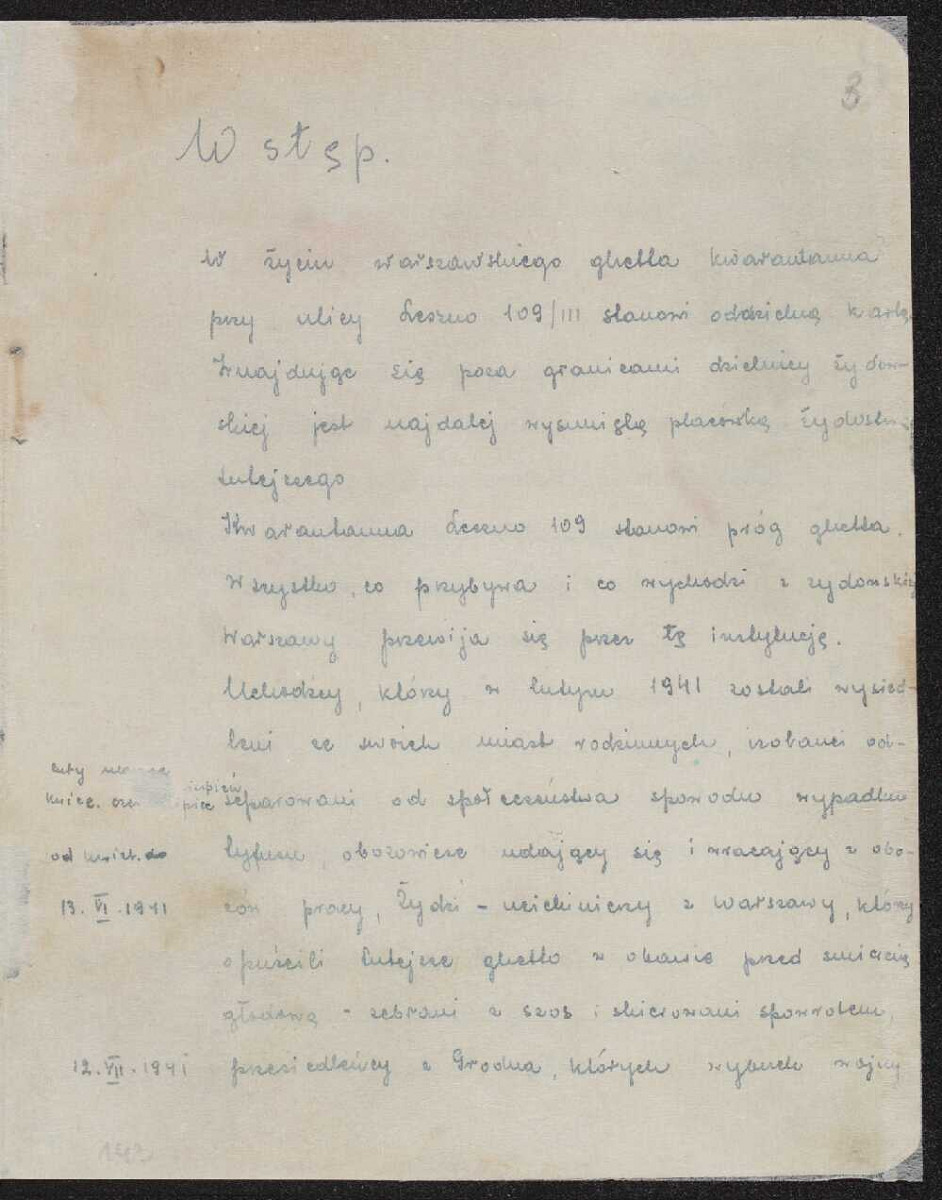 3
Wstęp.
W życiu warszawskiego ghetta kwarantanna
przy ulicy Leszno 109/III stanowi oddzielną kartę
Znajdując się poza granicami dzielnicy żydow-
skiej jest najdalej wysuniętą placówką żydostwa
tutejszego
Kwarantanna Leszno 109 stanowi próg ghetta.
Wszystko, co przybywa i co wychodzi z żydowskiej
Warszawy przewija się przez tę instytucję.
Uchodźcy, którzy w lutym 1941 zostali wysied-
leni ze swoich miast rodzinnych, izolanci od-
separowani od społeczeństwa spowodu wypadku
tyfusu, obozowicze udający się i wracający z obo-
zów pracy, Żydzi - uciekinierzy z Warszawy, którzy
opuścili tutejsze ghetto w obawie przed śmiercią
głodową - zebrani z szos i skierowani spowrotem,
przesiedleńcy z Grodna, których wybuch wojny
luty
kwiec.
od kwiet. do
13. VI. 1941
12. VII. 1941